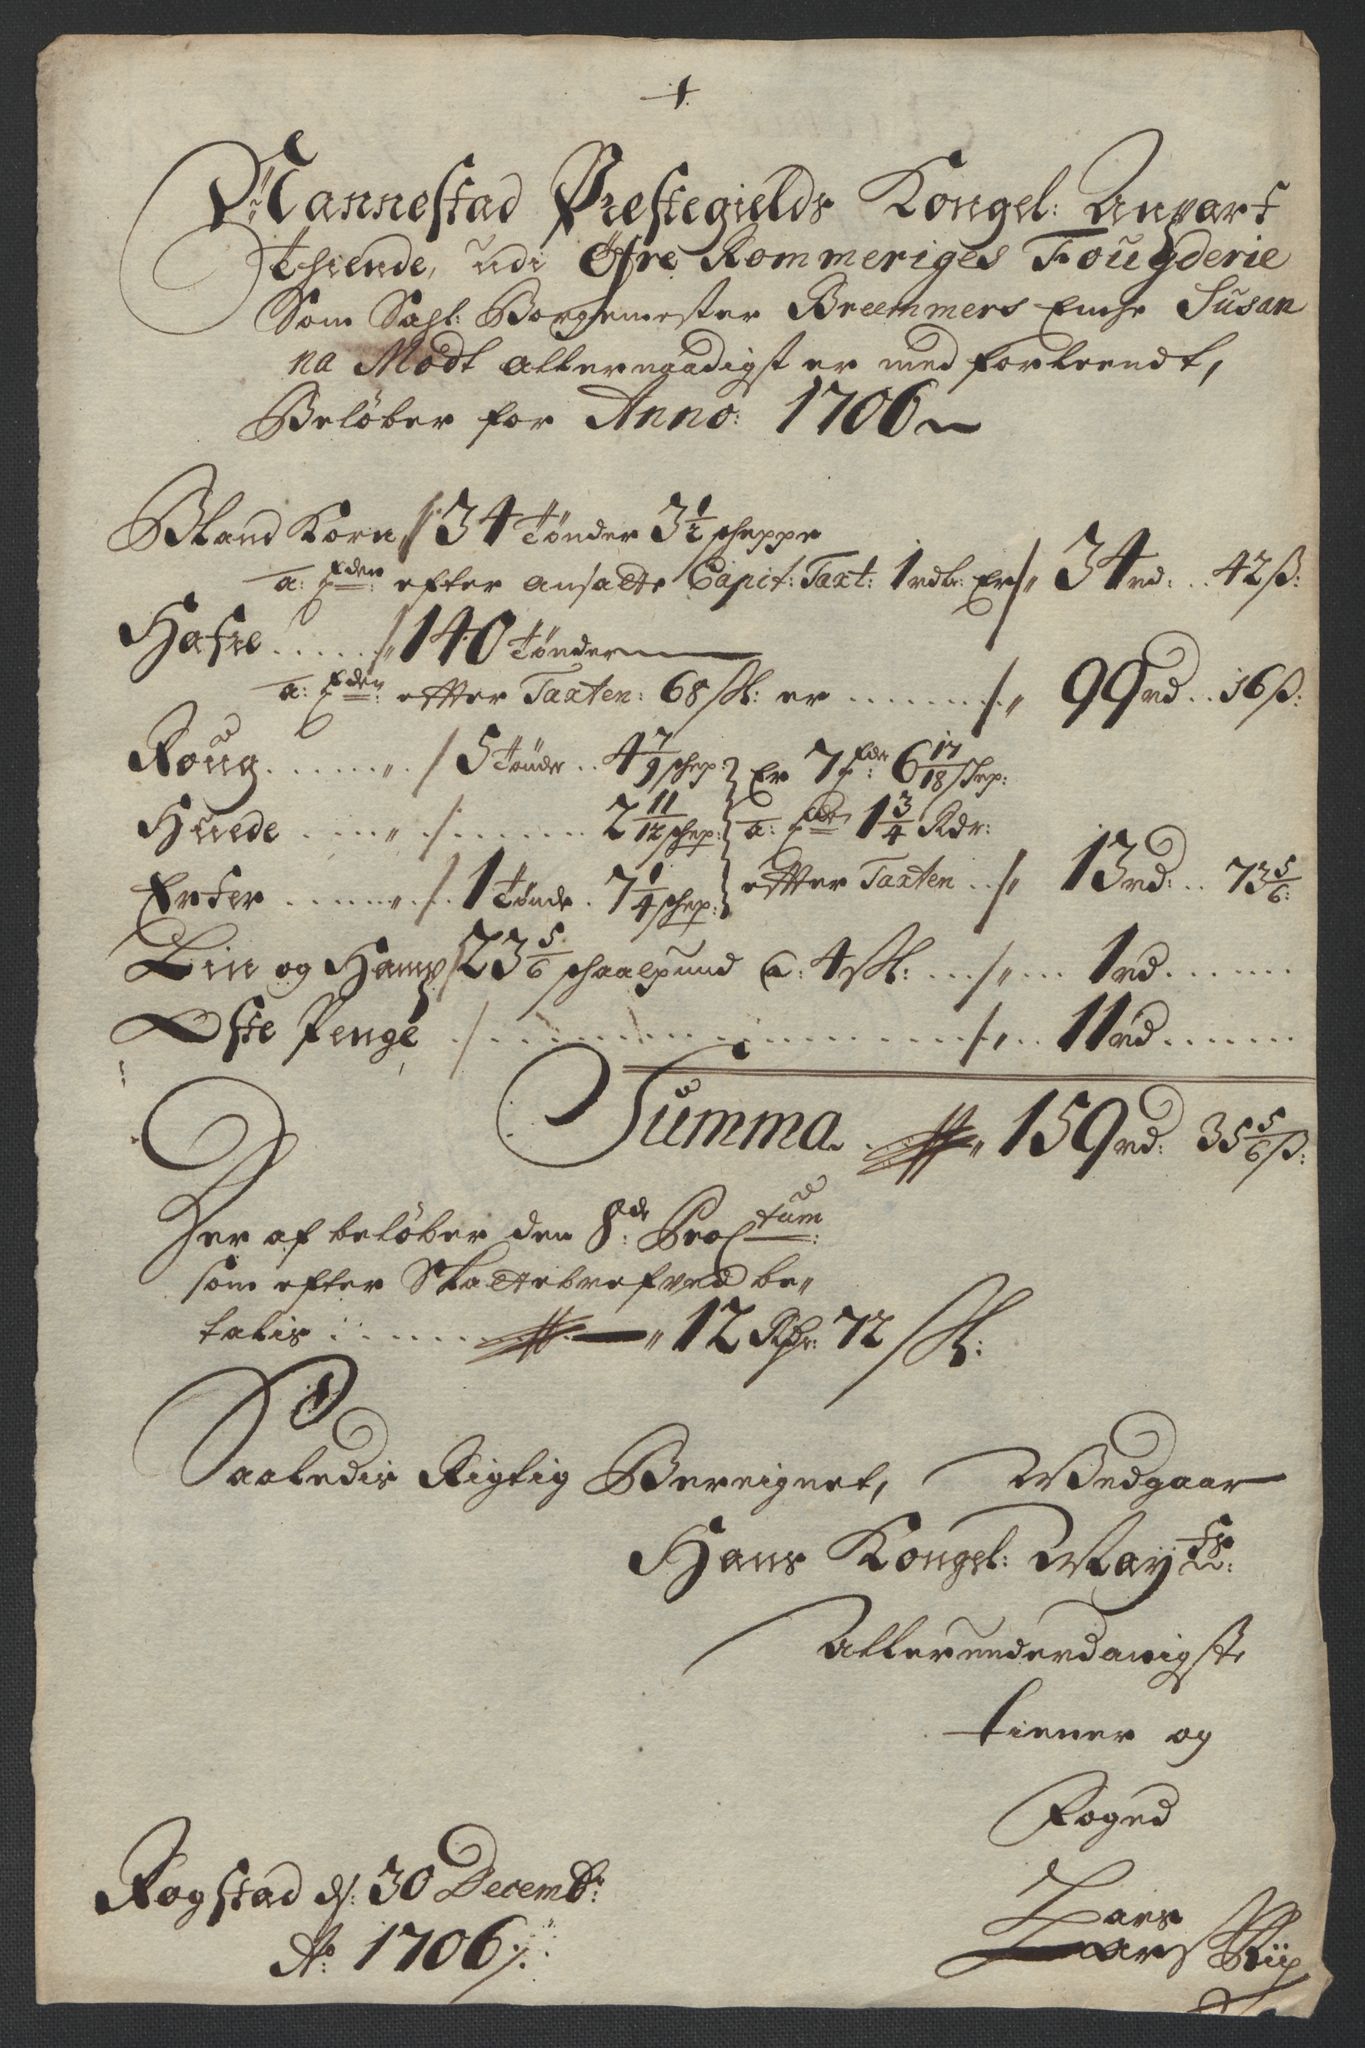 Nannestad Prestegields Kongel: Anpart
Thiende, udi Øfre Rommeriges Fougderie
Som Sahl: Borgemester Breemmers Enche Susan
na Modt allernaadigst er med forleendt,
Beløber for Anno: 1706
Bland Korn // 34 Tønder 3 1/2 scheppe
a: Tden: efter ansatte Capit: Taxt: 1 rdlr. Er // 34 rd: .. 42 ß:
Hafre ...... // 140 Tønder
a: Tden: efter Taxten: 68 sk: er ........ // 99 rd .. 16 ß:
Roug ........ / 5 Tønde .. 4 7/9 schep: Er 7 Tdr: 6 17/18 schep:
Huede ........ / ........ 2 11/12 schep: a: Tde 1 3/4 Rdr:
Erter ........ / 1 Tønde . 7 1/4 schep: efter Taxten .. // 13 rd: .. 73 5/6:
Lin og Hamp / 23 5/6 schaalpund a: 4 sk: ... // ... 1 rd ......
Oste Penge / ........ // .. 11 rd ......
Summa. // 159 rd: 35 5/6 ß:
Her af beløber den 8de: Pro Ctum:
som efter Skattebrefved be-
talis : ........ // 12 Rdr: 72 sk:
Saaledis Rigtig Bereignet, Vedgaar
Hans Kongel: Mayts:
Allerunderdanigste
tiener og
Foged
Lars
Lars Riis
Rogstad ds: 30 Decembr:
Ao: 1706